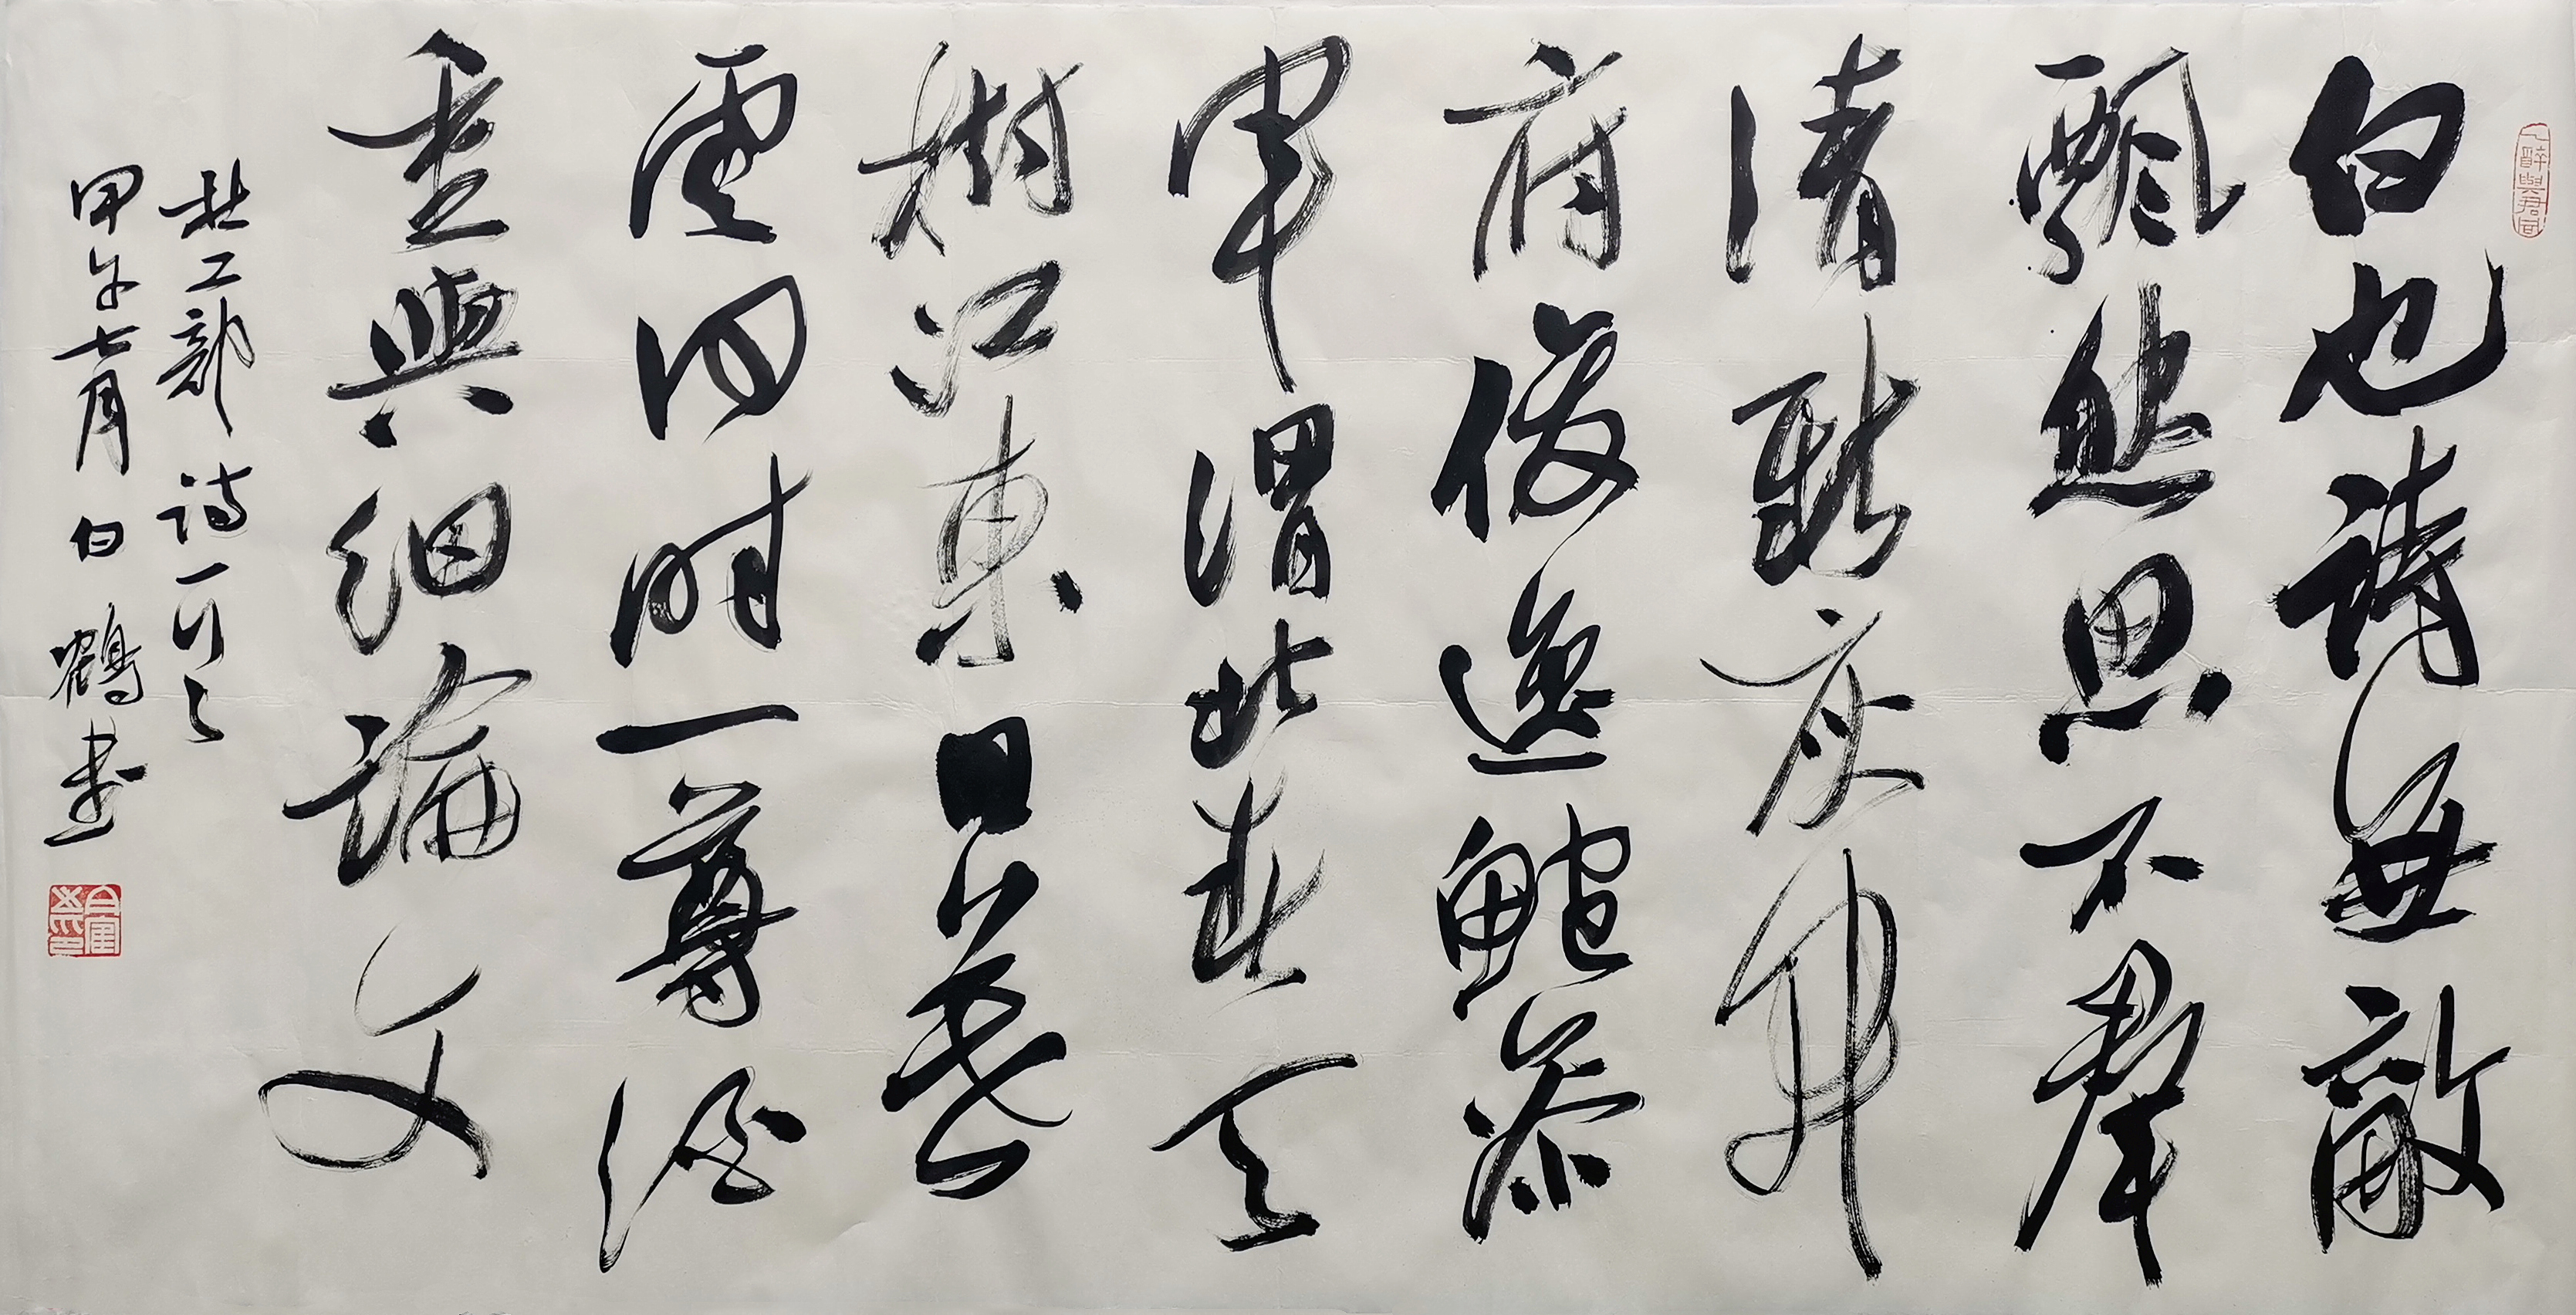 白也詩無敵
飄然思不羣
清新庾開
府俊逸鮑參
軍渭北春天
樹江東日暮
雲何時一尊酒
重與細論文
杜工部詩一首
甲午七月白鶴書